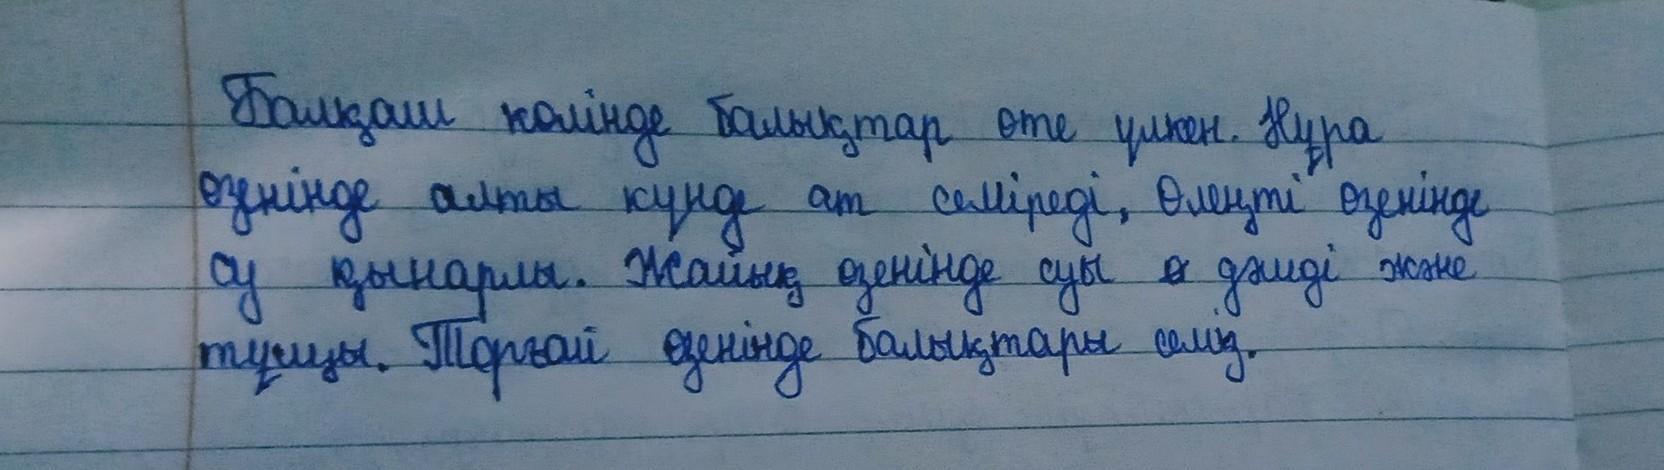 Балқаш көлінде балықтар өте үлкен. Нұра
өзенінде алты күнде ат семіреді, Өлеңті өзенінде
су құнарлы. Жайық өзенінде суы дәмді және
тұщы. Торғай өзенінде балықтары семіз.